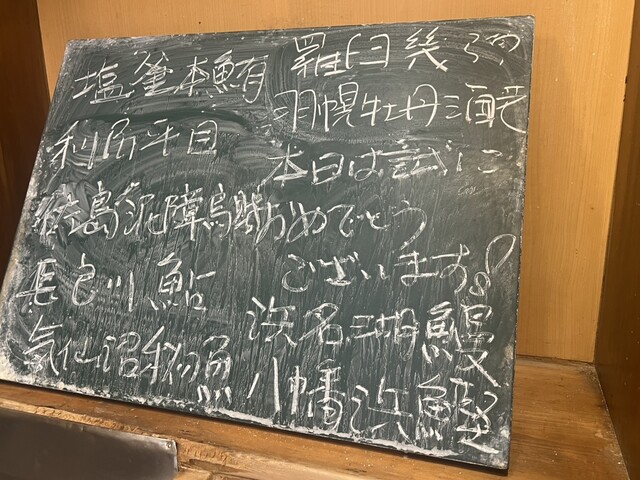 塩釜本鮪
利尻平目
佐島泥障烏賊
長良川鮎
気仙沼秋刀魚
羅臼
羽幌牡丹海老
本日は誠に
おめでとう
ございます!
浜名湖鰻
八幡浜鰹